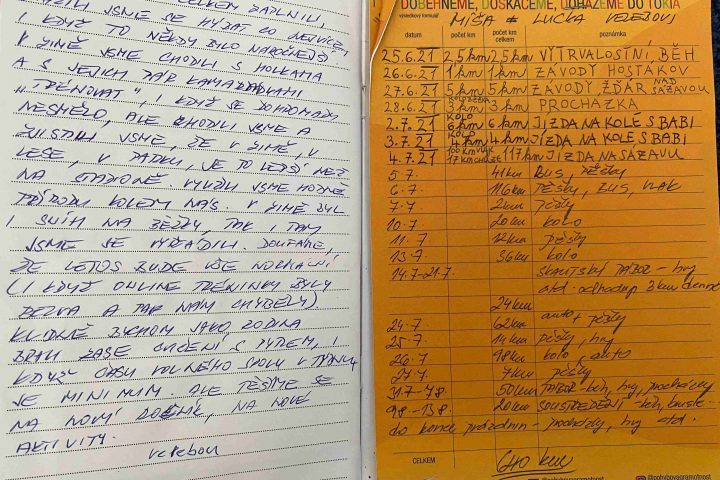 SNAŽILI JSME SE HÝBAT CO NEJVÍCE,
I KDYŽ TO NĚKDY BYLO NÁROČNĚJŠÍ
V ZIMĚ JSME CHODILI S HOLKAMA
A S JEJICH PÁR KAMARÁDKAMI
„TRÉNOVAT“, I KDYŽ SE DOHROMADY
NESMĚLO, ALE CHODILI JSME A
ZJISTILI JSME, ŽE V ZIMĚ, V
LESE, V PÁTKU, JE TO LEPŠÍ NEŽ
NA STADIONĚ. VYUŽILI JSME HODNĚ
PŘÍRODU KOLEM NÁS. V ZIMĚ BYL
I SNÍH NA BĚŽKY, TAK I TAM
JSME SE VYŘÁDILI. DOUFÁME,
ŽE LETOS BUDE VŠE NORMÁLNÍ
(I KDYŽ ONLINE TRÉNINKY BYLY
A TAK NÁM CHYBĚLY)
KLIDNĚ BYCHOM JAKO RODINA
BRALI ZASE CVIČENÍ S TÝMEM, I
KDYŽ ČASU VOLNÉHO SPOLU V TÝDNU
JE MINIMUM. ALE TĚŠÍME SE
NA NOVÝ ROČNÍK, NA NOVÉ
AKTIVITY.
DOBĚHNEME, DOSKÁČEME, DORAZÍME DO TOKIA
výsledkový formulář MÍŠA + LUCKA
datum počet km počet km celkem poznámka
25.6.21 2,5km 2,5km VYTRVALOSTNÍ BĚH
26.6.21 1km 1km ZÁVODY HOSŤÁKOV
27.6.21 5km 5km ZÁVODY ŽĎÁR NAD SÁZAVOU
28.6.21 KOLOBĚŽKA 3km 3km PROCHÁZKA
2.7.21 KOLO 6km 6km JÍZDA NA KOLE S BABI
3.7.21 KOLO 4km 4km JÍZDA NA KOLE S BABI
4.7.21 100 km VLAK 17 km CHŮZE 117km JÍZDA NA SÁZAVU
5.7. 41km BUS, PĚŠKY
6.7. 116km PĚŠKY, BUS, VLAK
7.7 2km pěšky
10.7 20km kolo
11.7 12km pěšky
13.7 36km kolo
14.7-21.7. SKAUTSKÝ TÁBOR - hry
atd. odhadup 3km denně
24km
24.7 62km auto + pěšky
25.7 14km pěšky, hry
26.7 98km kolo, auto
27.7 7km pěšky
31.7-7.8. 50km TÁBOR - běh, hry, procházky
9.8.-13.8. 20km SOUSTŘEDĚNÍ - běh, brusle
do konce prázdnin - procházky, hry atd.
CELKEM 640 km
@polybovagramotnost